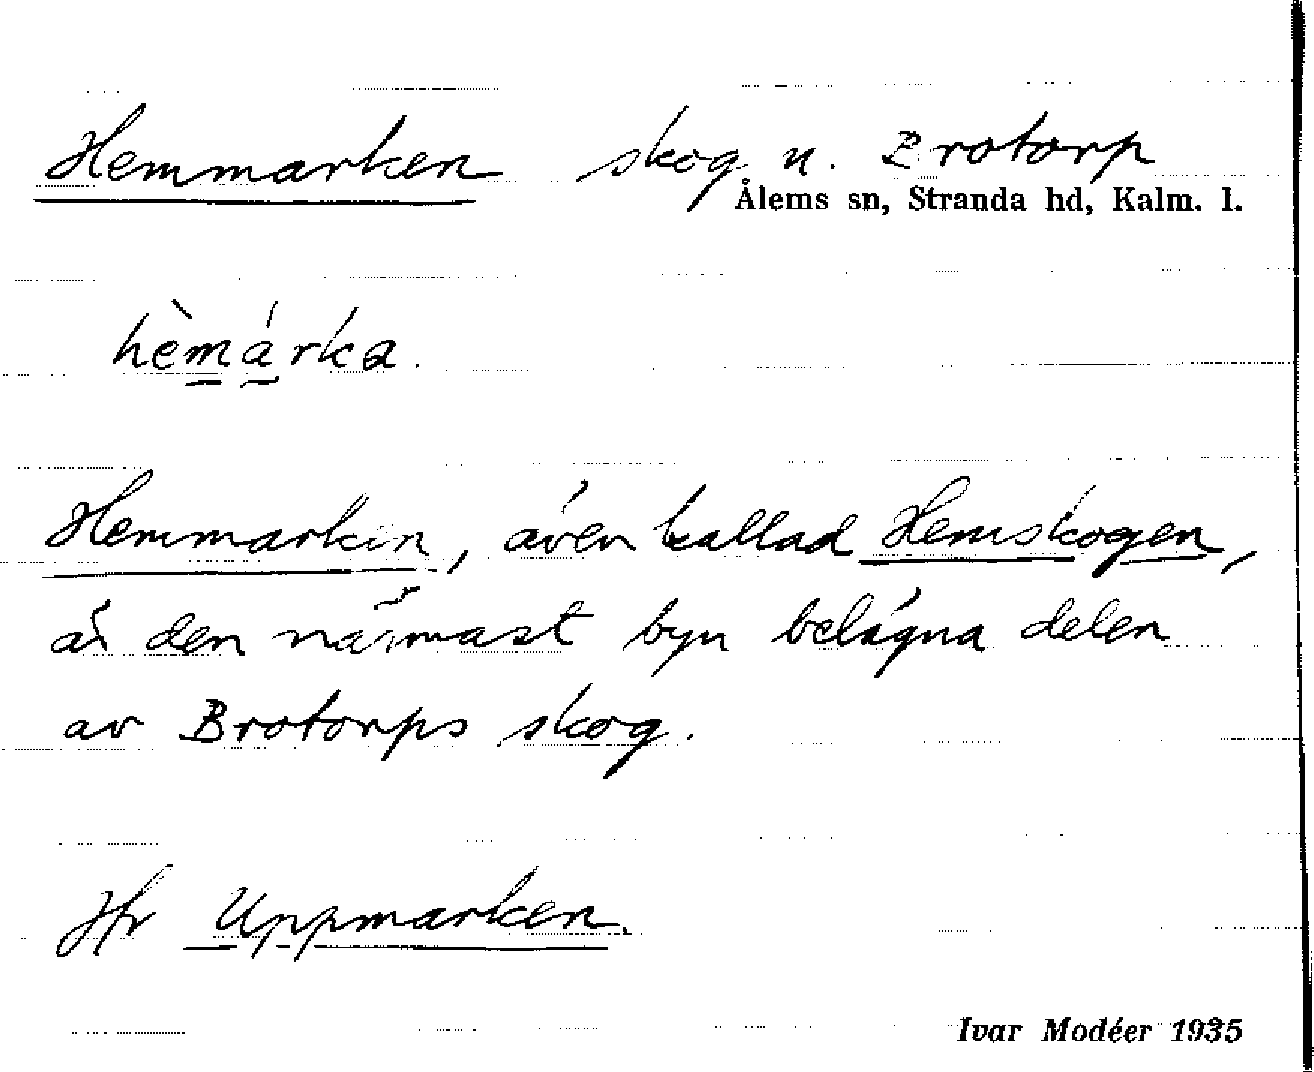 Hemmarken skog u. Brotorp
Ålems sn, Stranda hd, Kalm. l.
hèmárka.
Hemmarken, även kallad Hemskogen,
är den närmast byn belägna delen
av Brotorps skog.
Jfr Uppmarken.
Ivar Modéer 1935